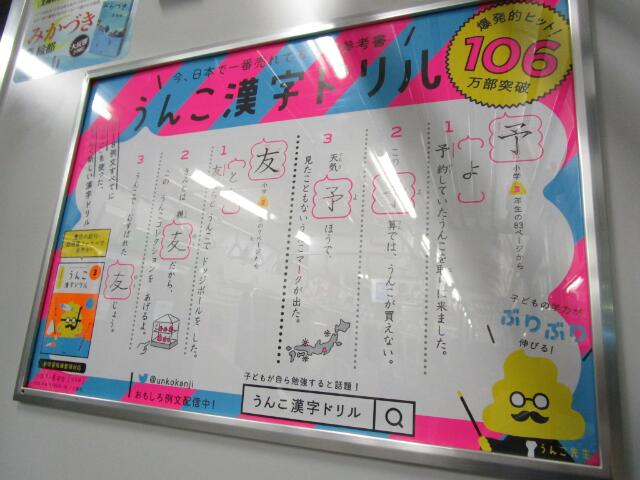 みかづき
今、日本で一番売れて
参考書
うんこ漢字ドリル
爆発的ヒット!
106
万部突破
予
小学3年生の83ページから
1 よ
予約していたうんこを取りに来ました。
2 この予算では、うんこが買えない。
3 天気予ほうで、
見たこともないうんこマークが出た。
友
小学
1 と
ドッジボールをした。
2 きみとは親友だから、
このうんこコレクションをあげるよ。
3
友
漢字ドリル
うんこ
漢字ドリル
3
@unkokanji
おもしろ例文配信中!
子どもが自ら勉強すると話題!
うんこ漢字ドリル
子どもの学力が
ぶりぶり
伸びる!
うんこ先生